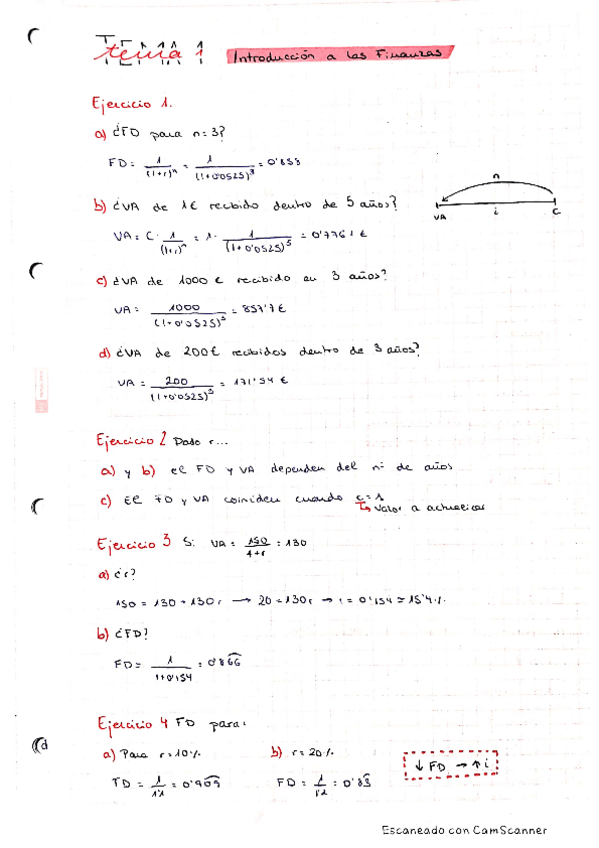 TEMA 1
tema
Introducción a las Finanzas
Ejercicio 1.
a) ¿FD para n=3?
FD = 1/(1+r)^n = 1/(1+0'0525)^3 = 0'858
b) ¿VA de 1€ recibido dentro de 5 años?
VA = C · 1/(1+r)^n = 1 · 1/(1+0'0525)^5 = 0'7761 €
n
VA i C
c) ¿VA de 1000 € recibido en 3 años?
VA = 1000/(1+0'0525)^3 = 857'7 €
d) ¿VA de 200€ recibidos dentro de 3 años?
VA = 200/(1+0'0525)^3 = 171'54 €
Ejercicio 2 Dado r...
a) y b) el FD y VA dependen del nº de años
c) El FD y VA coinciden cuando c=1
↳ valor a actualizar
Ejercicio 3 Si VA = 150/1+r = 130
a) ¿r?
150 = 130 + 130r → 20 = 130r → r = 0'154 ≈ 15'4%
b) ¿FD?
FD = 1/1+0'154 = 0'866
Ejercicio 4 FD para:
a) Para r=10% b) r=20%
FD = 1/1'1 = 0'909 FD = 1/1'2 = 0'83
↓ FD → ↑ i
Escaneado con CamScanner